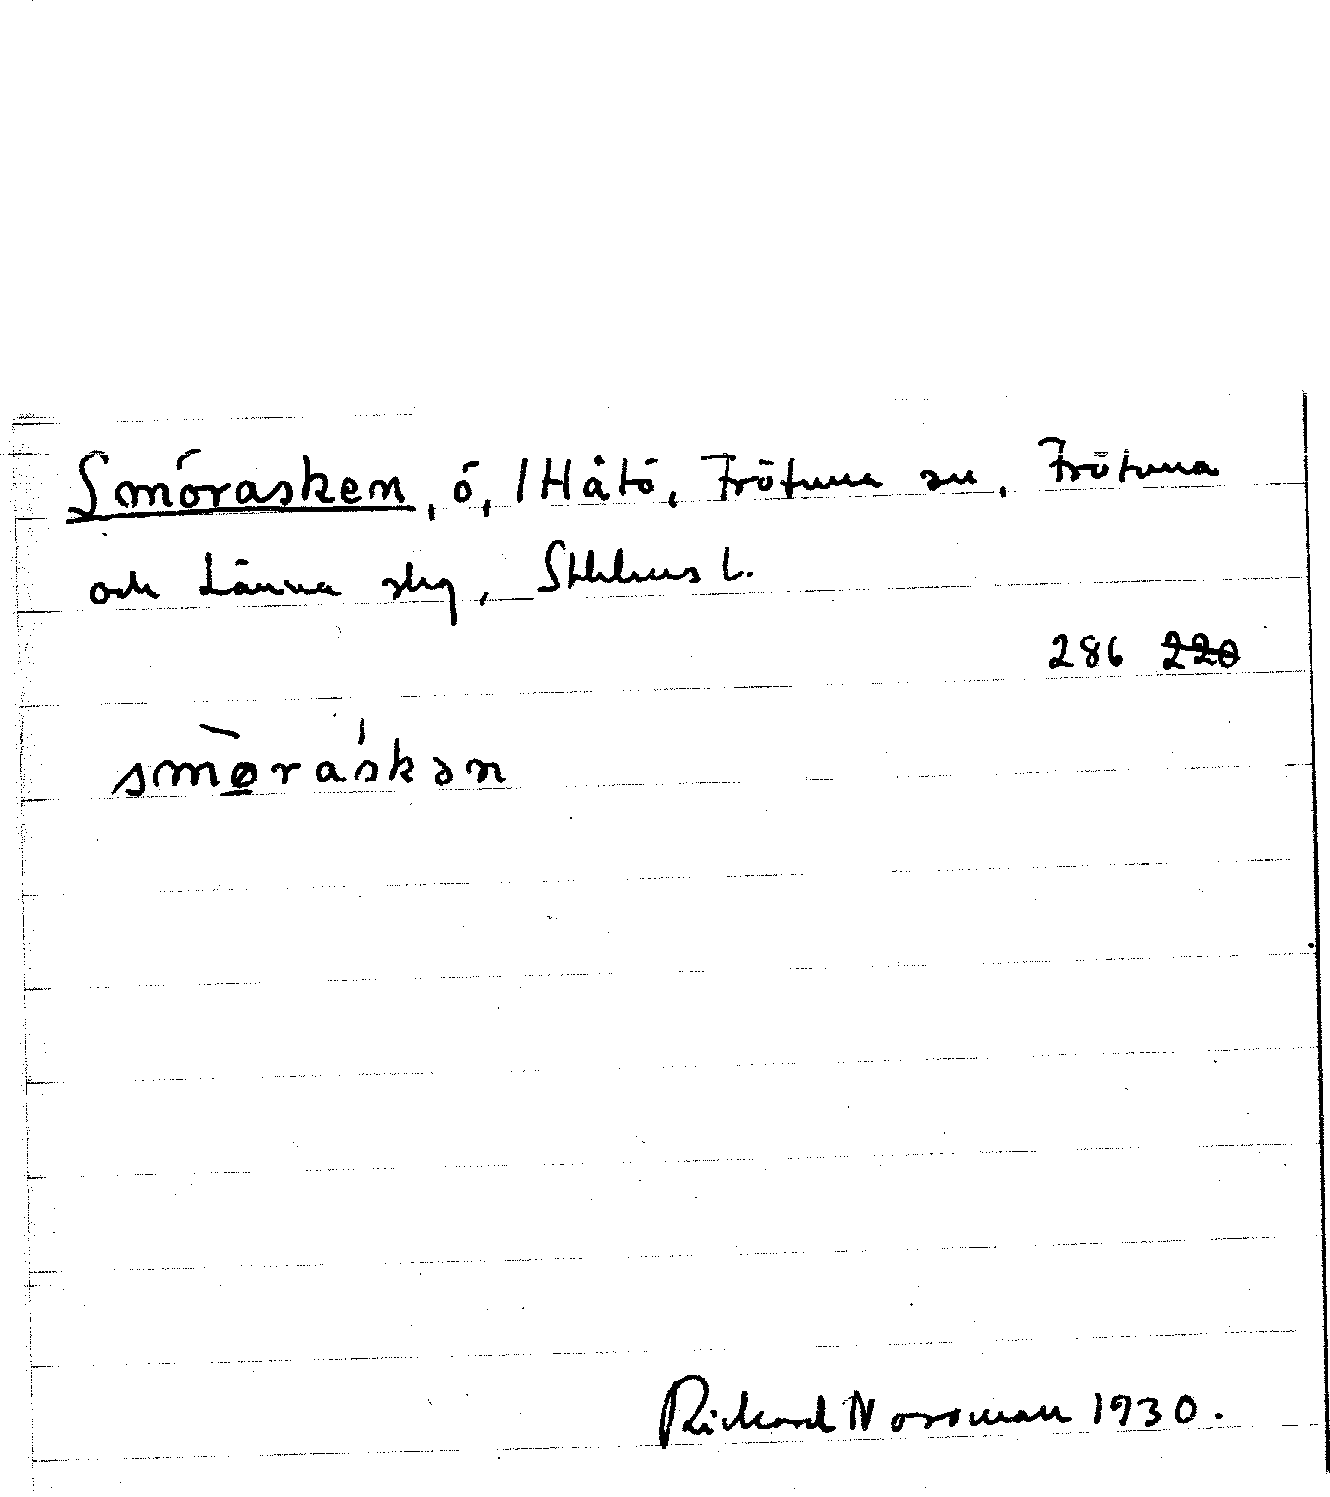 Smörasken, ö, 1 Håtö, Frötuna sn, Frötuna
och Länna skg, Sthlms l.
286 220
smø̀ràskən
Rickard Norsman 1930.